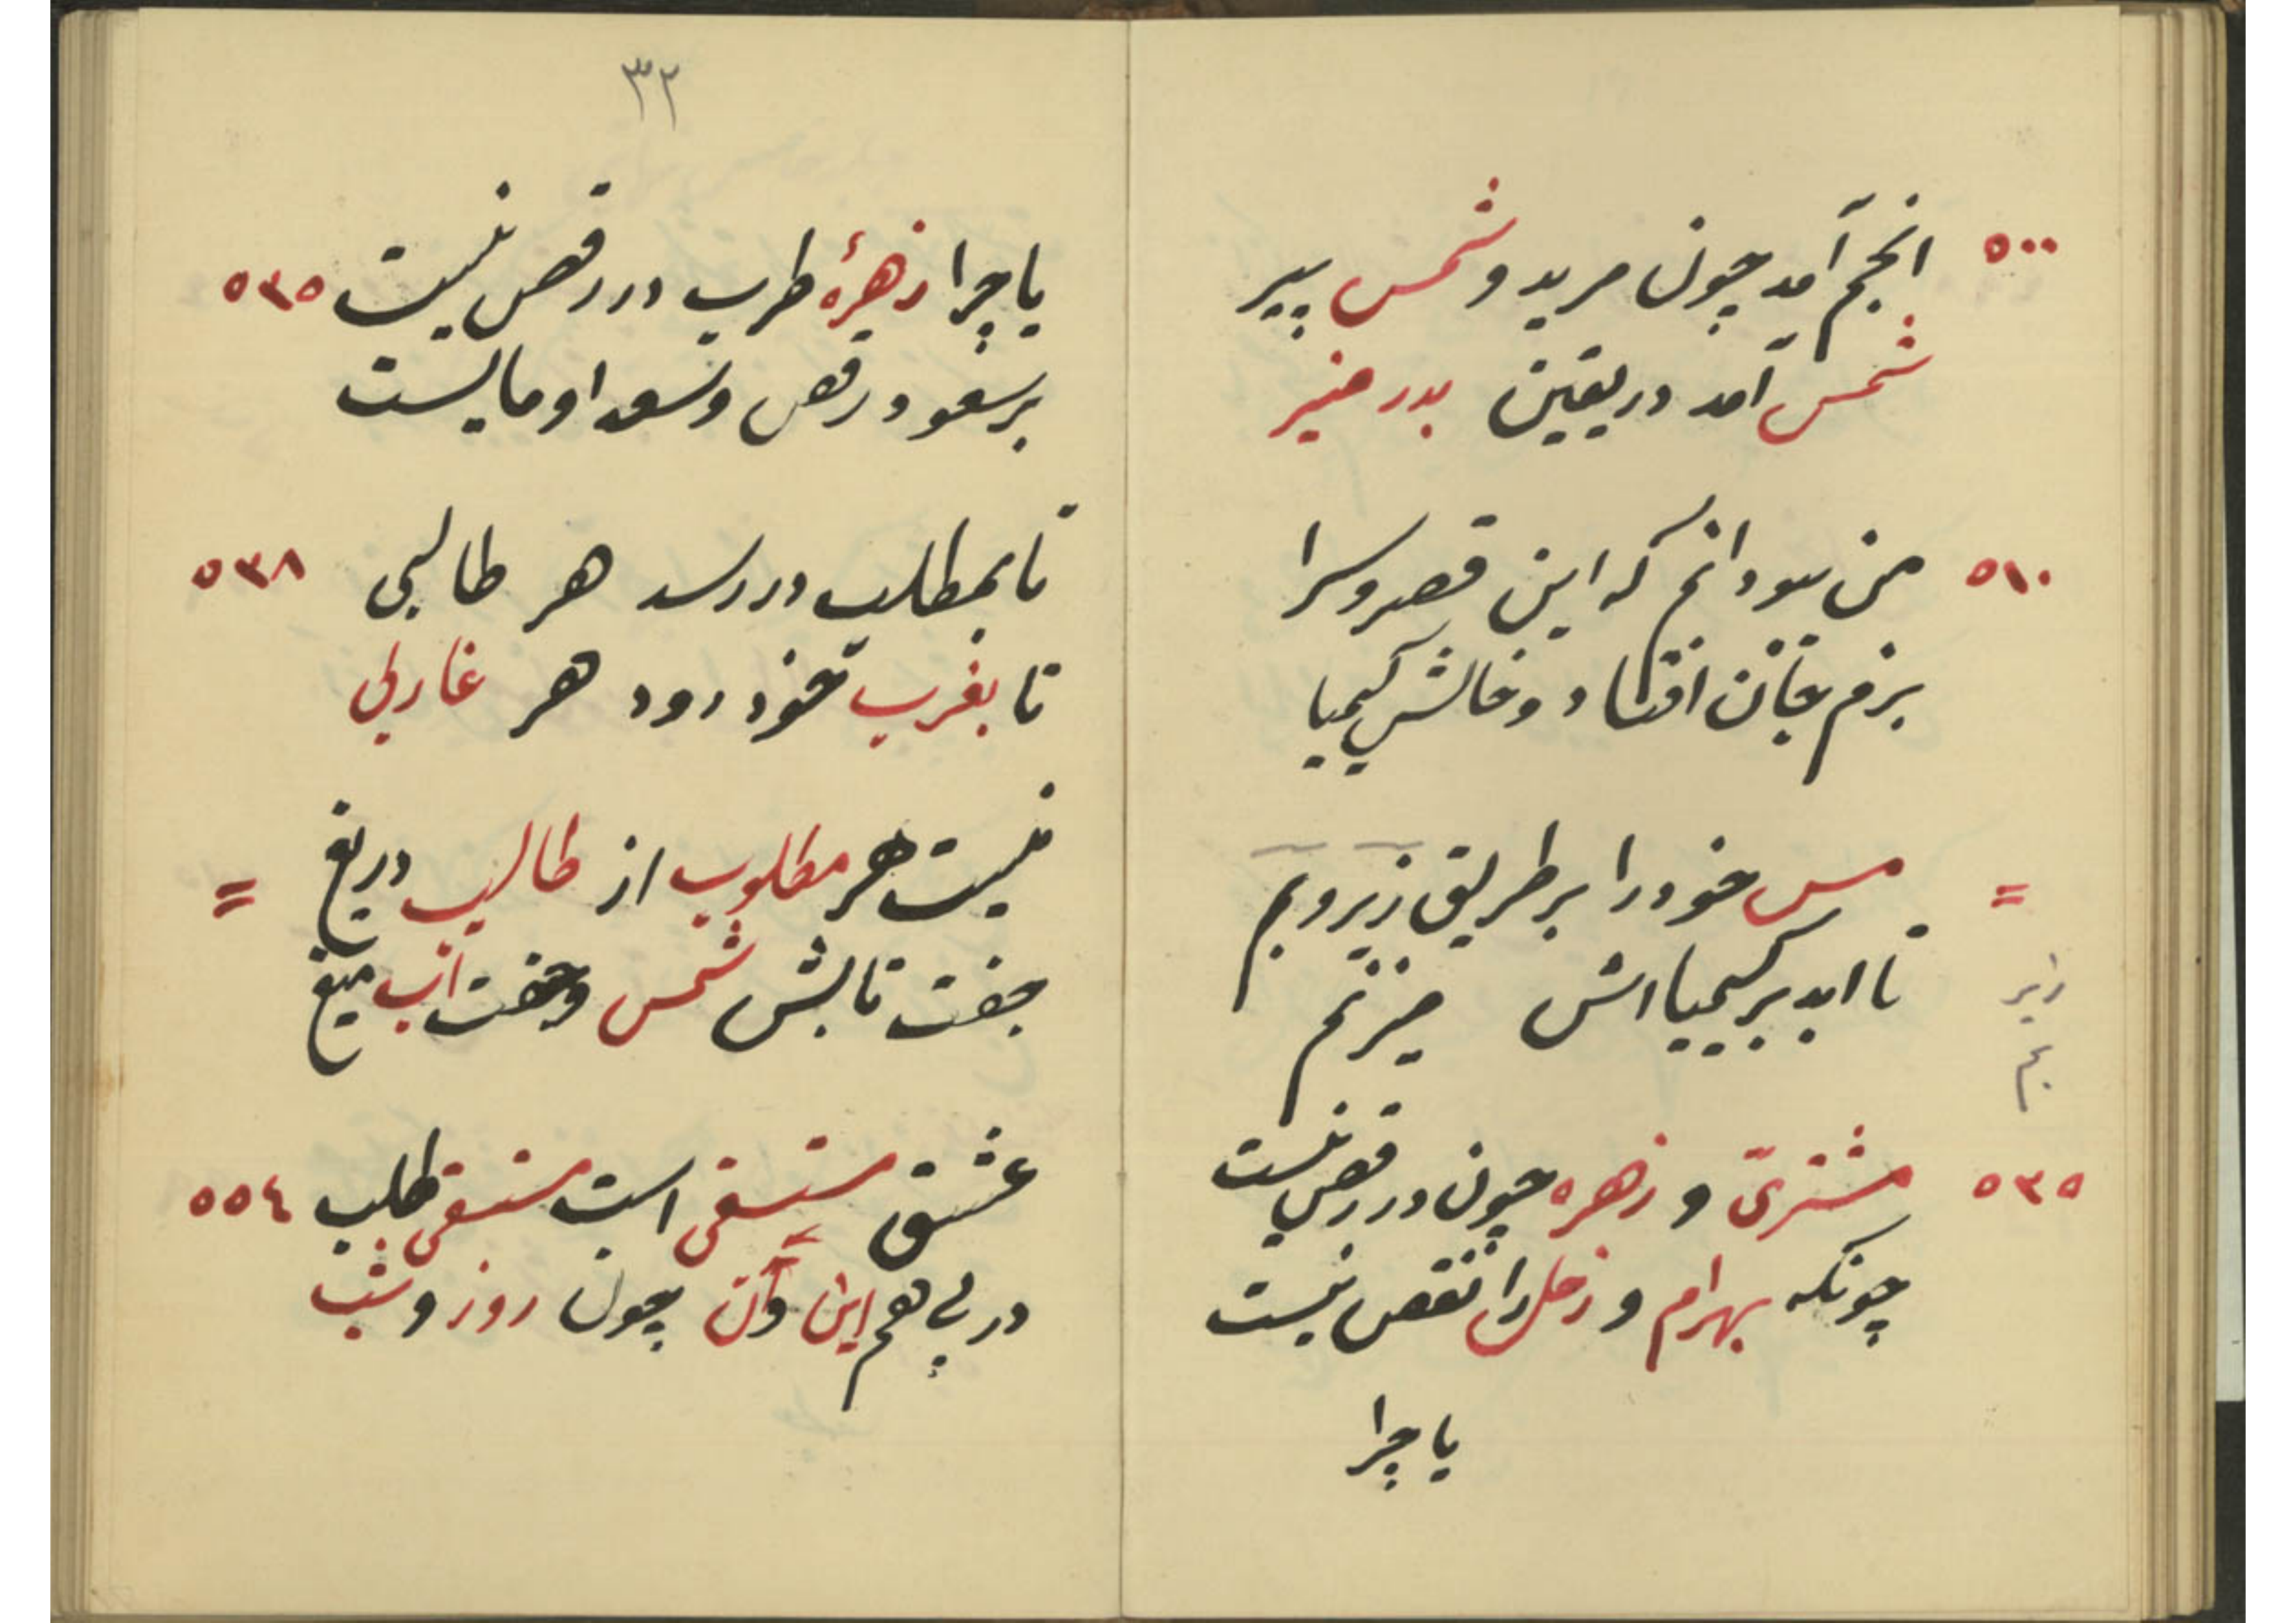 ٥٠٠
انجم آمد چون مرید و شمس پیر
شمس آمد در یقین بدر منیر
٥١٠
من بسودانم که این قصر و سرا
بزم جان افتاد و خاکش کیمیا
=
مس خود را بر طریق زیر و بم
تا ابد بر کیمیااش میزنم
زیر
بم
٥٣٥
مشتری و زهره چون در رقص نیست
چونکه بهرام و زحل را نقص نیست
یا چرا
٣٢
یا چرا زهرهٔ طرب در رقص نیست ٥٣٥
بر سعود و رقص و سعد او مایست
تا بمطلب در رسد هر طالبی ٥٣٨
تا بغرب خود رود هر غاربی
نیست هر مطلوب از طالب دریغ =
جفت تابش شمس و جفت آب میغ
عشق مستسقی است مستسقی طلب ٥٥٤
در پی هم این و آن چون روز و شب